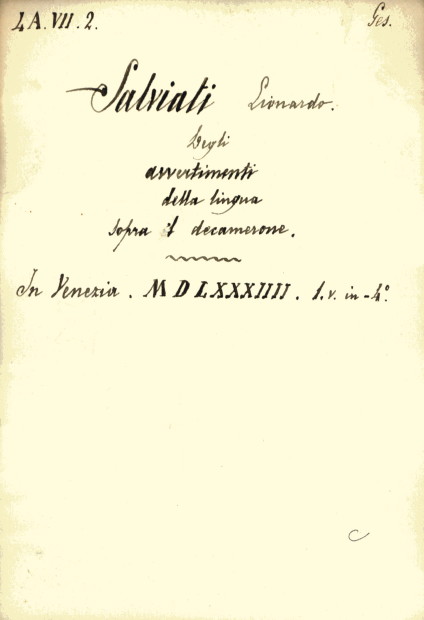 4 A. VII. 2. Ges.
Salviati Lionardo.
Degli
avvertimenti
della lingua
sopra 'l decamerone.
In Venezia. MDLXXXIIII. 1. v. in-4º.
C